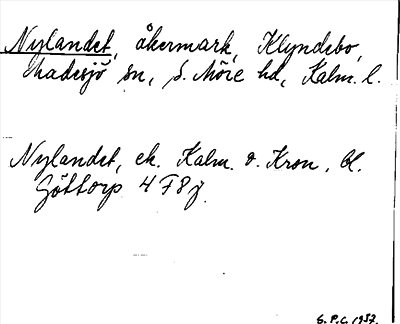 Nylandet, åkermark, Klyndebo,
Madesjö sn, S. Möre hd, Kalm. l.
Nylandet, ek. Kalm. o. Kron. bl.
Göttorp 4 F 8 j.
G. P. C. 1957.